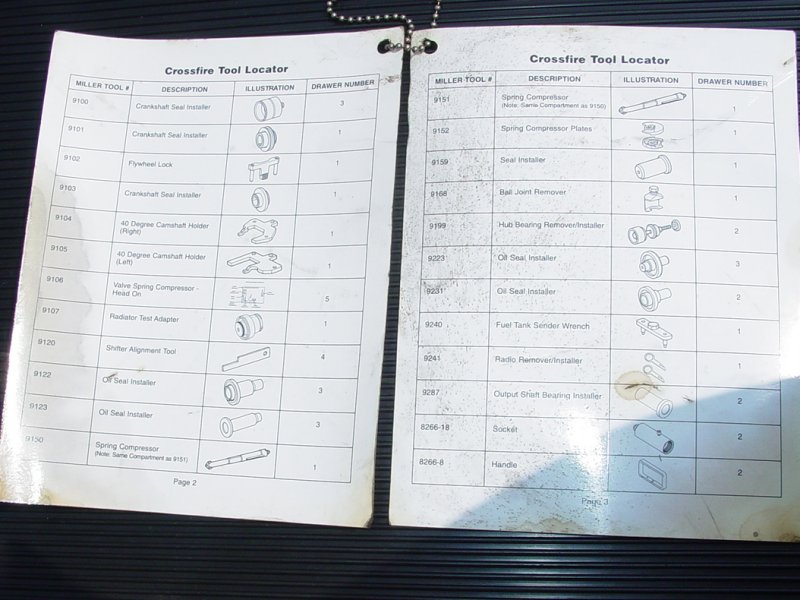 Crossfire Tool Locator
MILLER TOOL # DESCRIPTION ILLUSTRATION DRAWER NUMBER
9100 Crankshaft Seal Installer 3
9101 Crankshaft Seal Installer 1
9102 Flywheel Lock 1
9103 Crankshaft Seal Installer 1
9104 40 Degree Camshaft Holder
(Right) 1
9105 40 Degree Camshaft Holder
(Left) 1
9106 Valve Spring Compressor -
Head On 5
9107 Radiator Test Adapter 1
9120 Shifter Alignment Tool 4
9122 Oil Seal Installer 3
9123 Oil Seal Installer 3
9150 Spring Compressor
(Note: Same Compartment as 9151) 1
Page 2
Crossfire Tool Locator
MILLER TOOL # DESCRIPTION ILLUSTRATION DRAWER NUMBER
9151 Spring Compressor
(Note: Same Compartment as 9150) 1
9152 Spring Compressor Plates 1
9159 Seal Installer 1
9168 Ball Joint Remover 1
9199 Hub Bearing Remover/Installer 2
9223 Oil Seal Installer 3
9231 Oil Seal Installer 2
9240 Fuel Tank Sender Wrench 1
9241 Radio Remover/Installer 1
9287 Output Shaft Bearing Installer 2
8266-18 Socket 2
8266-8 Handle 2
Page 3